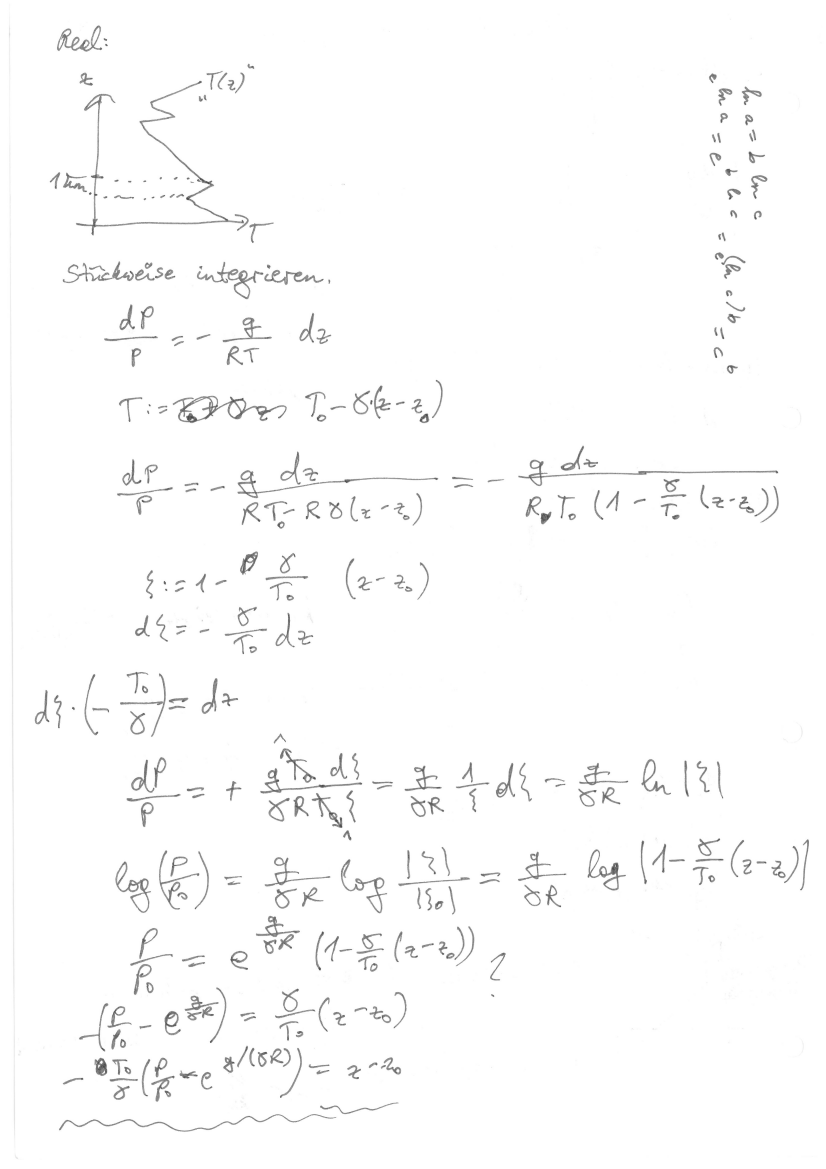 Real:
z
"T(z)"
1km
T
ln a = b ln c
e^{ln a} = e^{b ln c} = e^{(ln c) b} = c^b
Stückweise integrieren.
dP/P = - g/(RT) dz
T := T₀ - γ·(z - z₀)
dP/P = - g dz/(R T₀ - R γ (z - z₀)) = - g dz/(R T₀ (1 - γ/T₀ (z - z₀)))
ξ := 1 - γ/T₀ (z - z₀)
dξ = - γ/T₀ dz
dξ · (- T₀/γ) = dz
dP/P = + g T₀ dξ/(γ R T₀ ξ) = g/(γR) 1/ξ dξ = g/(γR) ln |ξ|
log(P/P₀) = g/(γR) log |ξ|/|ξ₀| = g/(γR) log |1 - γ/T₀ (z - z₀)|
P/P₀ = e^{g/(γR)} (1 - γ/T₀ (z - z₀)) ?
-(P/P₀ - e^{g/(γR)}) = γ/T₀ (z - z₀)
- T₀/γ (P/P₀ - e^{g/(γR)}) = z - z₀